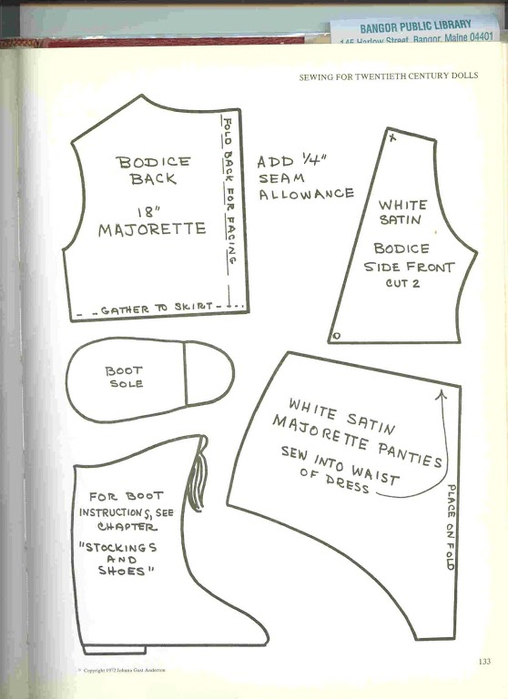 BANGOR PUBLIC LIBRARY
145 Harlow Street, Bangor, Maine 04401
SEWING FOR TWENTIETH CENTURY DOLLS
BODICE
BACK
18"
MAJORETTE
FOLD BACK FOR FACING
GATHER TO SKIRT
ADD 1/4"
SEAM
ALLOWANCE
WHITE
SATIN
BODICE
SIDE FRONT
CUT 2
BOOT
SOLE
WHITE SATIN
MAJORETTE PANTIES
SEW INTO WAIST
OF DRESS
PLACE ON FOLD
FOR BOOT
INSTRUCTIONS, SEE
CHAPTER
"STOCKINGS
AND
SHOES"
133
Copyright 1972 Johana Gast Anderton